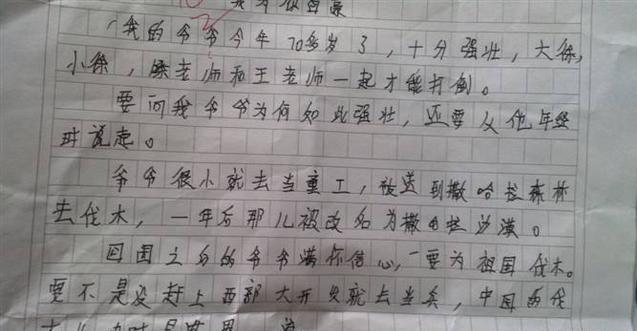 我的爷爷今年70多岁了，十分强壮，大徐，
小徐，滕老师和王老师一起才能打倒。
要问我爷爷为何如此强壮，还要从他年轻
时说起。
爷爷很小就去当童工，被送到撒哈拉森林
去伐木，一年后那儿被改名为撒哈拉沙漠。
回国之后的爷爷满怀信心，要为祖国伐木。
要不是没赶上西部大开发就去当兵，中国